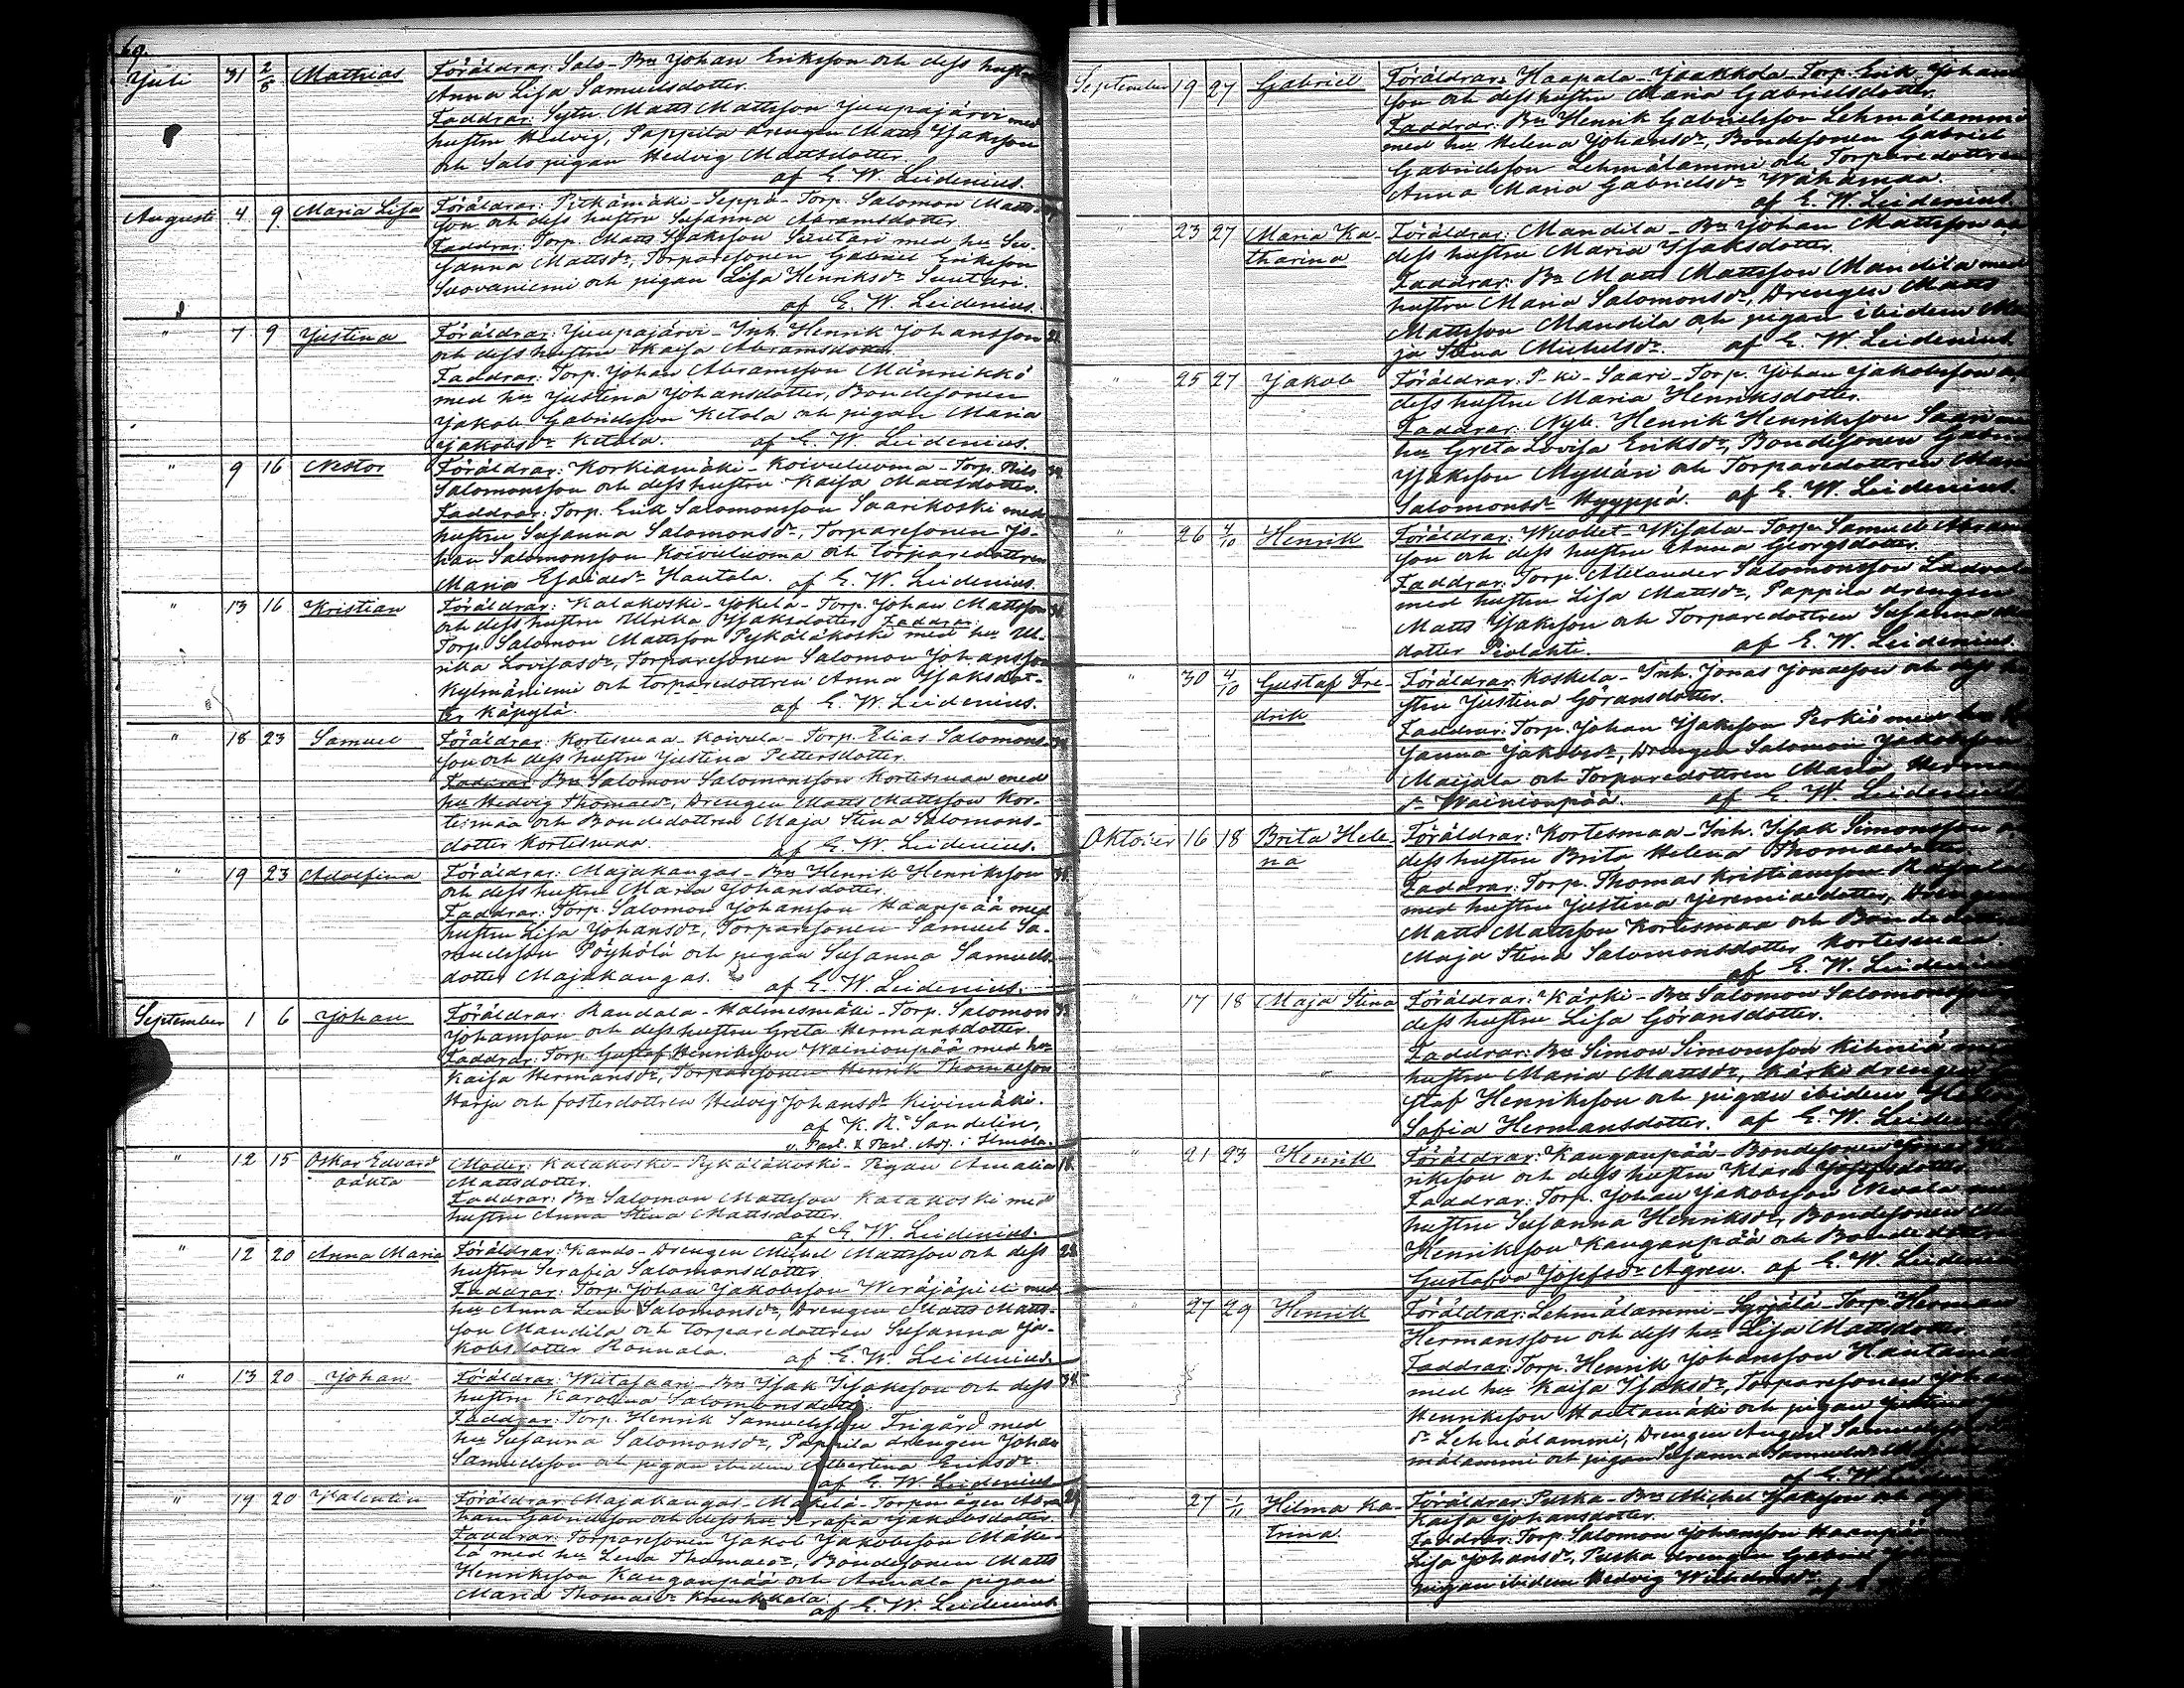 69.
Juli 31 2/8 Mathias Föräldrar: Salo-Bn Johan Eriksson och dess hustru
Anna Lisa Samuelsdotter.
Faddrar: Sytn. Matts Mattsson Juupajärvi med
hustru Hedvig, Pappila drengen Matts Isaksson
och Salo pigan Hedvig Mattsdotter.
af E. W. Leidenius.
Augusti 4 9 Maria Lisa Föräldrar: Pitkämäki-Seppä-Torp. Salomon Matts-
son och dess hustru Susanna Abramsdotter.
Faddrar: Torp. Matts Isaksson Suutari med hu Su-
sanna Mattsdr, Torparesonen Gabriel Eriksson
Luovaniemi och pigan Lisa Henriksdr Suutari.
af E. W. Leidenius.
" 7 9 Justina Föräldrar: Juupajärvi-Inh. Henrik Johansson
och dess hustru Kaisa Abramsdotter.
Faddrar: Torp. Johan Abramsson Männikkö
med hu Justina Johansdotter, Bondesonen
Jakob Gabrielsson Ketola och pigan Maria
Jakobsdr Ketola. af E. W. Leidenius.
" 9 16 Nestor Föräldrar: Korkiamäki-Koivuluoma-Torp. Nils
Salomonsson och dess hustru Kaisa Mattsdotter.
Faddrar: Torp. Erik Salomonsson Saarikoski med
hustru Susanna Salomonsdr, Torparesonen Jo-
han Salomonsson Koivuluoma och torparedottren
Maria Esaiaedr Hautala. af E. W. Leidenius.
" 13 16 Kristian Föräldrar: Kalakoski-Jokela-Torp. Johan Mattsson
och dess hustru Ulrika Isaksdotter. Faddrar:
Torp. Salomon Mattsson Pykäläkoski med hu Ul-
rika Lovisasdr, Torparesonen Salomon Johansson
Kylmäniemi och torparedottren Anna Isaksdot-
ter Käpylä. af E. W. Leidenius.
" 18 23 Samuel Föräldrar: Kortesmaa-Koivula-Torp. Elias Salomons-
son och dess hustru Justina Pettersdotter.
Faddrar: Bn Salomon Salomonsson Kortesmaa med
hu Hedvig Thomaedr, Drengen Matts Mattsson Kor-
tesmaa och Bondedottren Maja Stina Salomons-
dotter Kortesmaa. af E. W. Leidenius.
" 19 23 Adolfina Föräldrar: Majakangas-Bn Henrik Henriksson
och dess hustru Maria Johansdotter.
Faddrar: Torp. Salomon Johansson Haanpää med
hustru Lisa Johansdr, Torparesonen Samuel Sa-
muelsson Pöyhölä och pigan Susanna Samuels-
dotter Majakangas. af E. W. Leidenius.
September 1 6 Johan Föräldrar: Randala-Holmesmäki-Torp. Salomon
Johansson och dess hustru Greta Hermansdotter.
Faddrar: Torp. Gustaf Henriksson Wainionpää med hu
Kaisa Hermansdr, Torparesonen Henrik Thomasson
Harju och fosterdottren Hedvig Johansdr Kivimäki.
af K. R. Sandelin,
v. Past. & Past. Adj. i Ilmola.
" 12 15 Oskar Edvard oäkta Moder: Kalakoski-Pykäläkoski-Pigan Amalia
Mattsdotter.
Faddrar: Bn Salomon Mattsson Kalakoski med
hustru Anna Stina Mattsdotter.
af E. W. Leidenius.
" 12 20 Anna Maria Föräldrar: Kando-Drengen Mickel Mattsson och dess
hustru Serafia Salomonsdotter
Faddrar: Torp. Johan Jakobsson Weräjäpelti med
hu Anna Lena Salomonsdr, Drengen Matts Matts-
son Mandila och torparedottren Susanna Ja-
kobsdotter Rannala. af E. W. Leidenius.
" 13 20 Johan Föräldrar: Wiitasaari-Bn Isak Isaksson och dess
hustru Karolina Salomonsdotter.
Faddrar: Torp. Henrik Samuelsson Frigård med
hu Susanna Salomonsdr, Pappila drengen Johan
Samuelsson och pigan ibidem Albertina Eriksdr.
af E. W. Leidenius.
" 19 20 Valentin Föräldrar: Majakangas-Mäkelä-Torpmågen Abra-
ham Gabrielsson och dess hu Serafia Jakobsdotter.
Faddrar: Torparesonen Jakob Jakobsson Mäke-
lä med hu Lena Thomaedr, Bondesonen Matts
Henriksson Kanganpää och Annala pigan
Maria Thomaedr Kuukkala.
af E. W. Leidenius.
September 19 27 Gabriel Föräldrar: Haapala-Jaakkola-Torp. Erik Johans-
son och dess hustru Maria Gabrielsdotter.
Faddrar: Bn Henrik Gabrielsson Lehmälammi
med hu Helena Johansdr, Bondesonen Gabriel
Gabrielsson Lehmälammi och Torparedottren
Anna Maria Gabrielsdr Wähämaa.
af E. W. Leidenius.
" 23 27 Maria Ka- Föräldrar: Mandila-Bn Johan Mattsson och
tharina dess hustru Maria Isaksdotter.
Faddrar: Bn Matts Mattsson Mandila med
hustru Maria Salomonsdr, Drengen Matts
Mattsson Mandila och pigan ibidem Ma-
ja Stina Mickelsdr. af E. W. Leidenius.
" 25 27 Jakob Föräldrar: P-ki-Saari-Torp. Johan Jakobsson och
dess hustru Maria Henriksdotter.
Faddrar: Nyb. Henrik Henriksson Saari med
hu Greta Lovisa Eriksdr, Bondesonen Gabriel
Isaksson Mylläri och Torparedottren Maria
Salomonsdr Hyyppä. af E. W. Leidenius.
" 26 4/10 Henrik Föräldrar: Wuollet-Wisala-Torp. Samuel Abrams-
son och dess hustru Anna Georgsdotter.
Faddrar: Torp. Alexander Salomonsson Ladvala
med hustru Lisa Mattsdr, Pappila drengen
Matts Isaksson och Torparedottren Susanna
dotter Piolahti. af E. W. Leidenius.
" 30 4/10 Gustaf Fre- Föräldrar: Koskela-Inh. Jonas Jonasson och dess hu-
drik stru Justina Göransdotter.
Faddrar: Torp. Johan Isaksson Perkiö med hu Su-
sanna Jakobsdr, Drengen Salomon Jakobsson
Maijala och Torparedottren Maria Hermans-
dr Wainionpää. af E. W. Leidenius.
Oktober 16 18 Brita Hele- Föräldrar: Kortesmaa-Inh. Isak Simonsson och
na dess hustru Brita Helena Thomaedotter.
Faddrar: Torp. Thomas Kristiansson
med hustru Justina Jeremiaedotter, Drengen
Matts Mattsson Kortesmaa och Bondedottren
Maja Stina Salomonsdotter Kortesmaa.
af E. W. Leidenius.
" 17 18 Maja Stina Föräldrar: Kärki-Bn Salomon Salomonsson
dess hustru Lisa Göransdotter.
Faddrar: Bn Simon Simonsson Kihniä med
hustru Maria Mattsdr, Kärki drengen Gu-
staf Henriksson och pigan ibidem
Sofia Hermansdotter. af E. W. Leidenius.
" 21 23 Henrik Föräldrar: Kanganpää-Bondesonen Jonas Hen-
riksson och dess hustru Klara Josefsdotter.
Faddrar: Torp. Johan Jakobsson Nevala med
hustru Susanna Henriksdr, Bondesonen
Henriksson Kanganpää och Bondedottren
Gustafva Josefsdr Ågren. af E. W. Leidenius.
" 27 29 Henrik Föräldrar: Lehmälammi-Syrjälä-Torp. Herman
Hermansson och dess hu Lisa Mattsdotter.
Faddrar: Torp. Henrik Johansson Hautamäki
med hu Kaisa Isaksdr, Torparesonen Johan
Henriksson Hautamäki och pigan Justina
dr Lehmälammi, Drengen August Samuelsson
mälammi och pigan Susanna Samuelsdr
af E. W. Leidenius.
" 27 1/11 Hilma Ka- Föräldrar: Puska-Bn Mickel Isaksson och
trina Kaisa Johansdotter.
Faddrar: Torp. Salomon Johansson Haanpää
Lisa Johansdr, Puska drengen Gabriel
pigan ibidem Hedvig Wilhelmsdr.
af E.